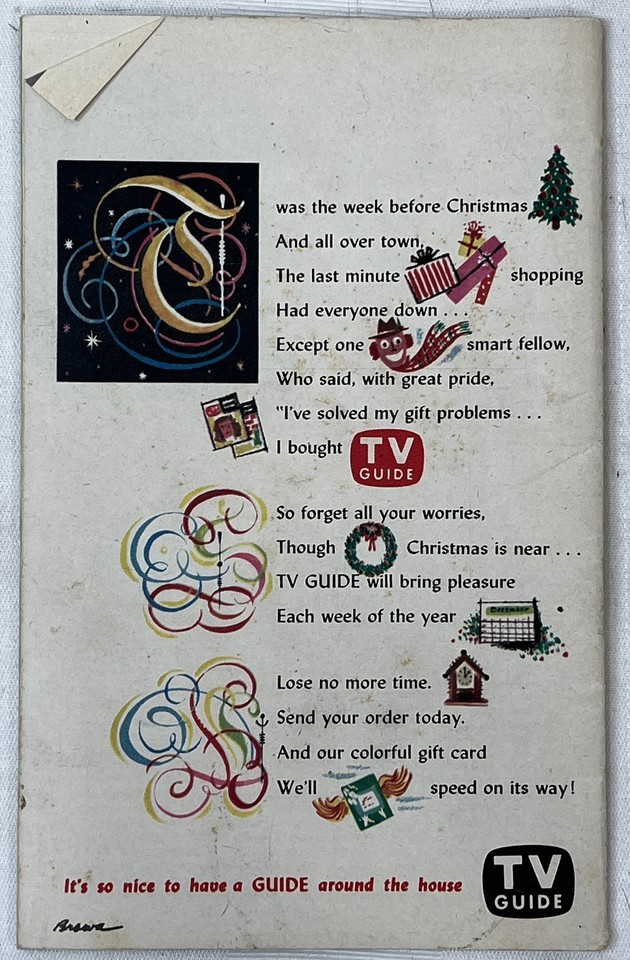 T was the week before Christmas
And all over town,
The last minute shopping
Had everyone down . . .
Except one smart fellow,
Who said, with great pride,
"I've solved my gift problems . . .
I bought TV GUIDE
So forget all your worries,
Though Christmas is near . . .
TV GUIDE will bring pleasure
Each week of the year
DECEMBER
Lose no more time.
Send your order today.
And our colorful gift card
We'll speed on its way!
It's so nice to have a GUIDE around the house
TV
GUIDE